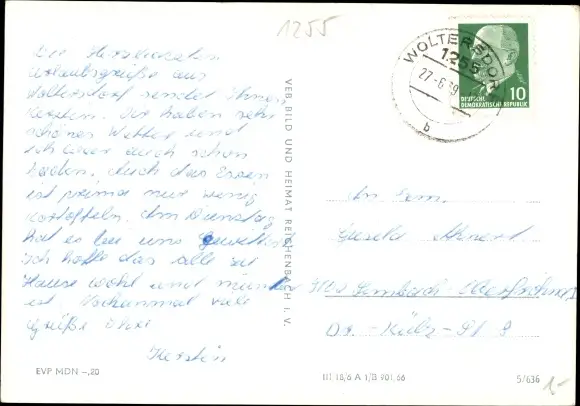 1255
Die Herzlichsten
Urlaubsgrüße aus
Woltersdorf sendet Ihnen
Kerstin. Wir haben sehr
schönes Wetter und
ich war auch schon
baden. Auch das Essen
ist prima nur wenig
Kartoffeln. Am Dienstag
hat es bei uns Gewittert.
Ich hoffe das alle zu
Hause wohl und munter
ist. Nochanmal viele
Grüße Ihre
Kerstin
EVP MDN –,20
VEB BILD UND HEIMAT REICHENBACH I. V.
WOLTERSDORF
1255
27.-6.69
b
DEUTSCHE
DEMOKRATISCHE REPUBLIK
10
An Fam.
Gisela
Limbach-Oberfrohna
Dr.-Külz-St 8
III 18/6 A 1/B 901/66
5/636
1,-